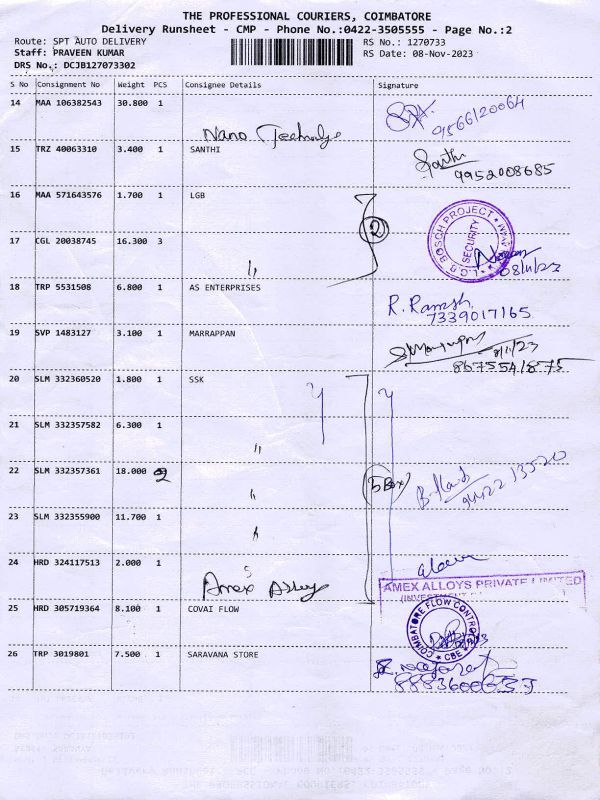 THE PROFESSIONAL COURIERS, COIMBATORE
Delivery Runsheet - CMP - Phone No.:0422-3505555 - Page No.:2
Route: SPT AUTO DELIVERY
RS No.: 1270733
Staff: PRAVEEN KUMAR
RS Date: 08-Nov-2023
DRS No.: DCJB127073302
S No Consignment No Weight PCS Consignee Details Signature
14 MAA 106382543 30.800 1 Nano
9566120064
15 TRZ 40063310 3.400 1 SANTHI
Santhi
9952008685
16 MAA 571643576 1.700 1 LGB
2
L.G.B. BOSCH PROJECT
SECURITY
17 CGL 20038745 16.300 3 "
08/11/23
18 TRP 5531508 6.800 1 AS ENTERPRISES
R. Ramesh
7339017165
19 SVP 1483127 3.100 1 MARRAPPAN
8/11/23
20 SLM 332360520 1.800 1 SSK
21 SLM 332357582 6.300 1 "
22 SLM 332357361 18.000 2 "
5 Box
94422 13520
23 SLM 332355900 11.700 1 "
24 HRD 324117513 2.000 1 Amex Alloy
AMEX ALLOYS PRIVATE LIMITED
25 HRD 305719364 8.100 1 COVAI FLOW
COIMBATORE FLOW CONTROL
CBE
26 TRP 3019801 7.500 1 SARAVANA STORE